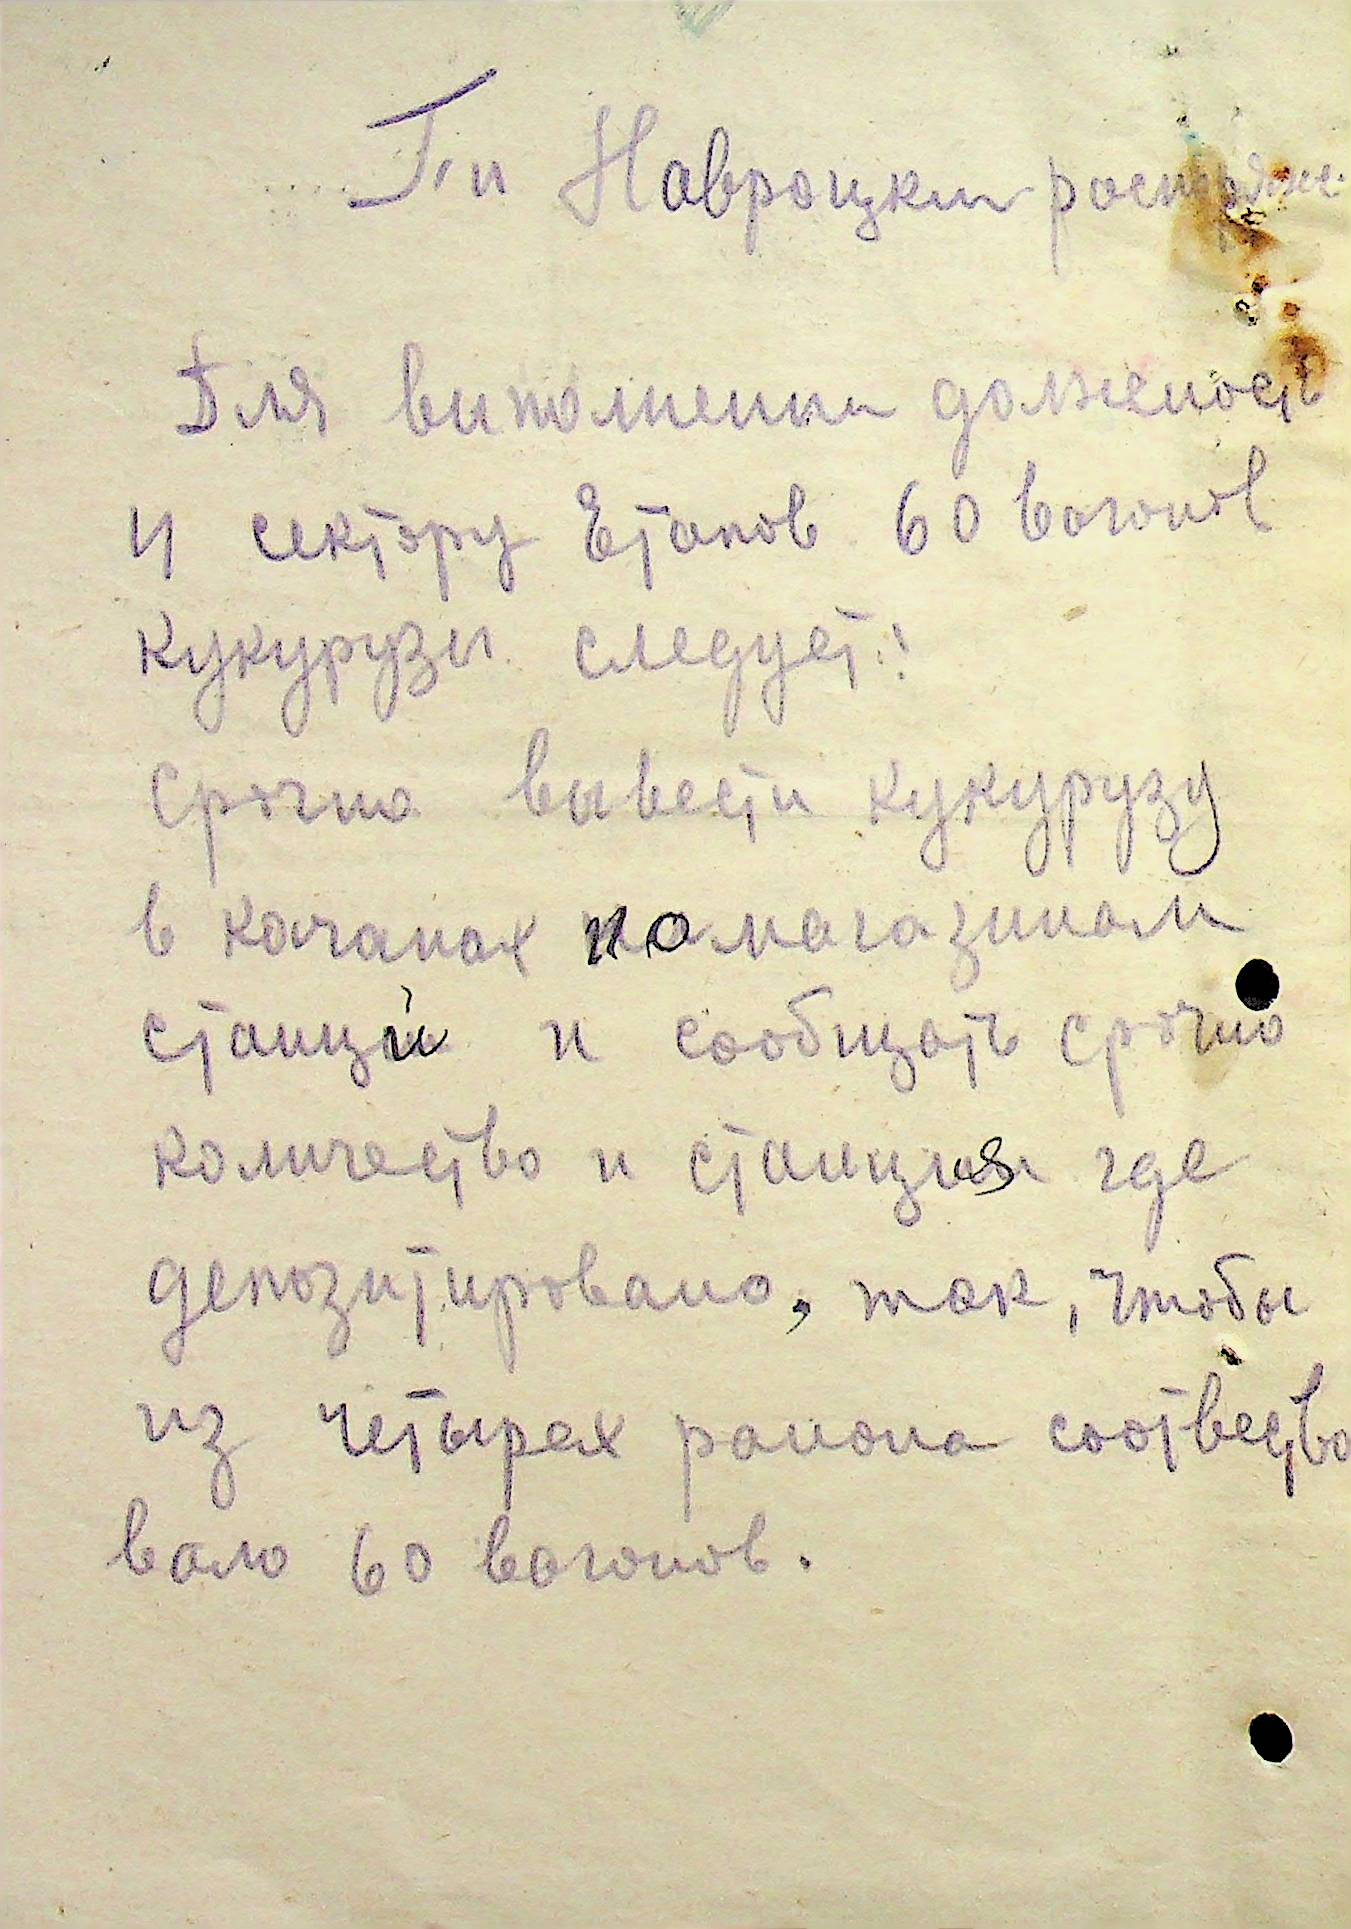 Г-н Навроцки распоряже.
Для виполнении должность
и сектору Етапов 60 вагонов
кукурузы следует:
срочно вывести кукурузу
в качанах по магазинам
станций и сообщать срочно
количество и станция где
депозитировано, так, чтобы
из четырех раиона соотвество
вало 60 вагонов.